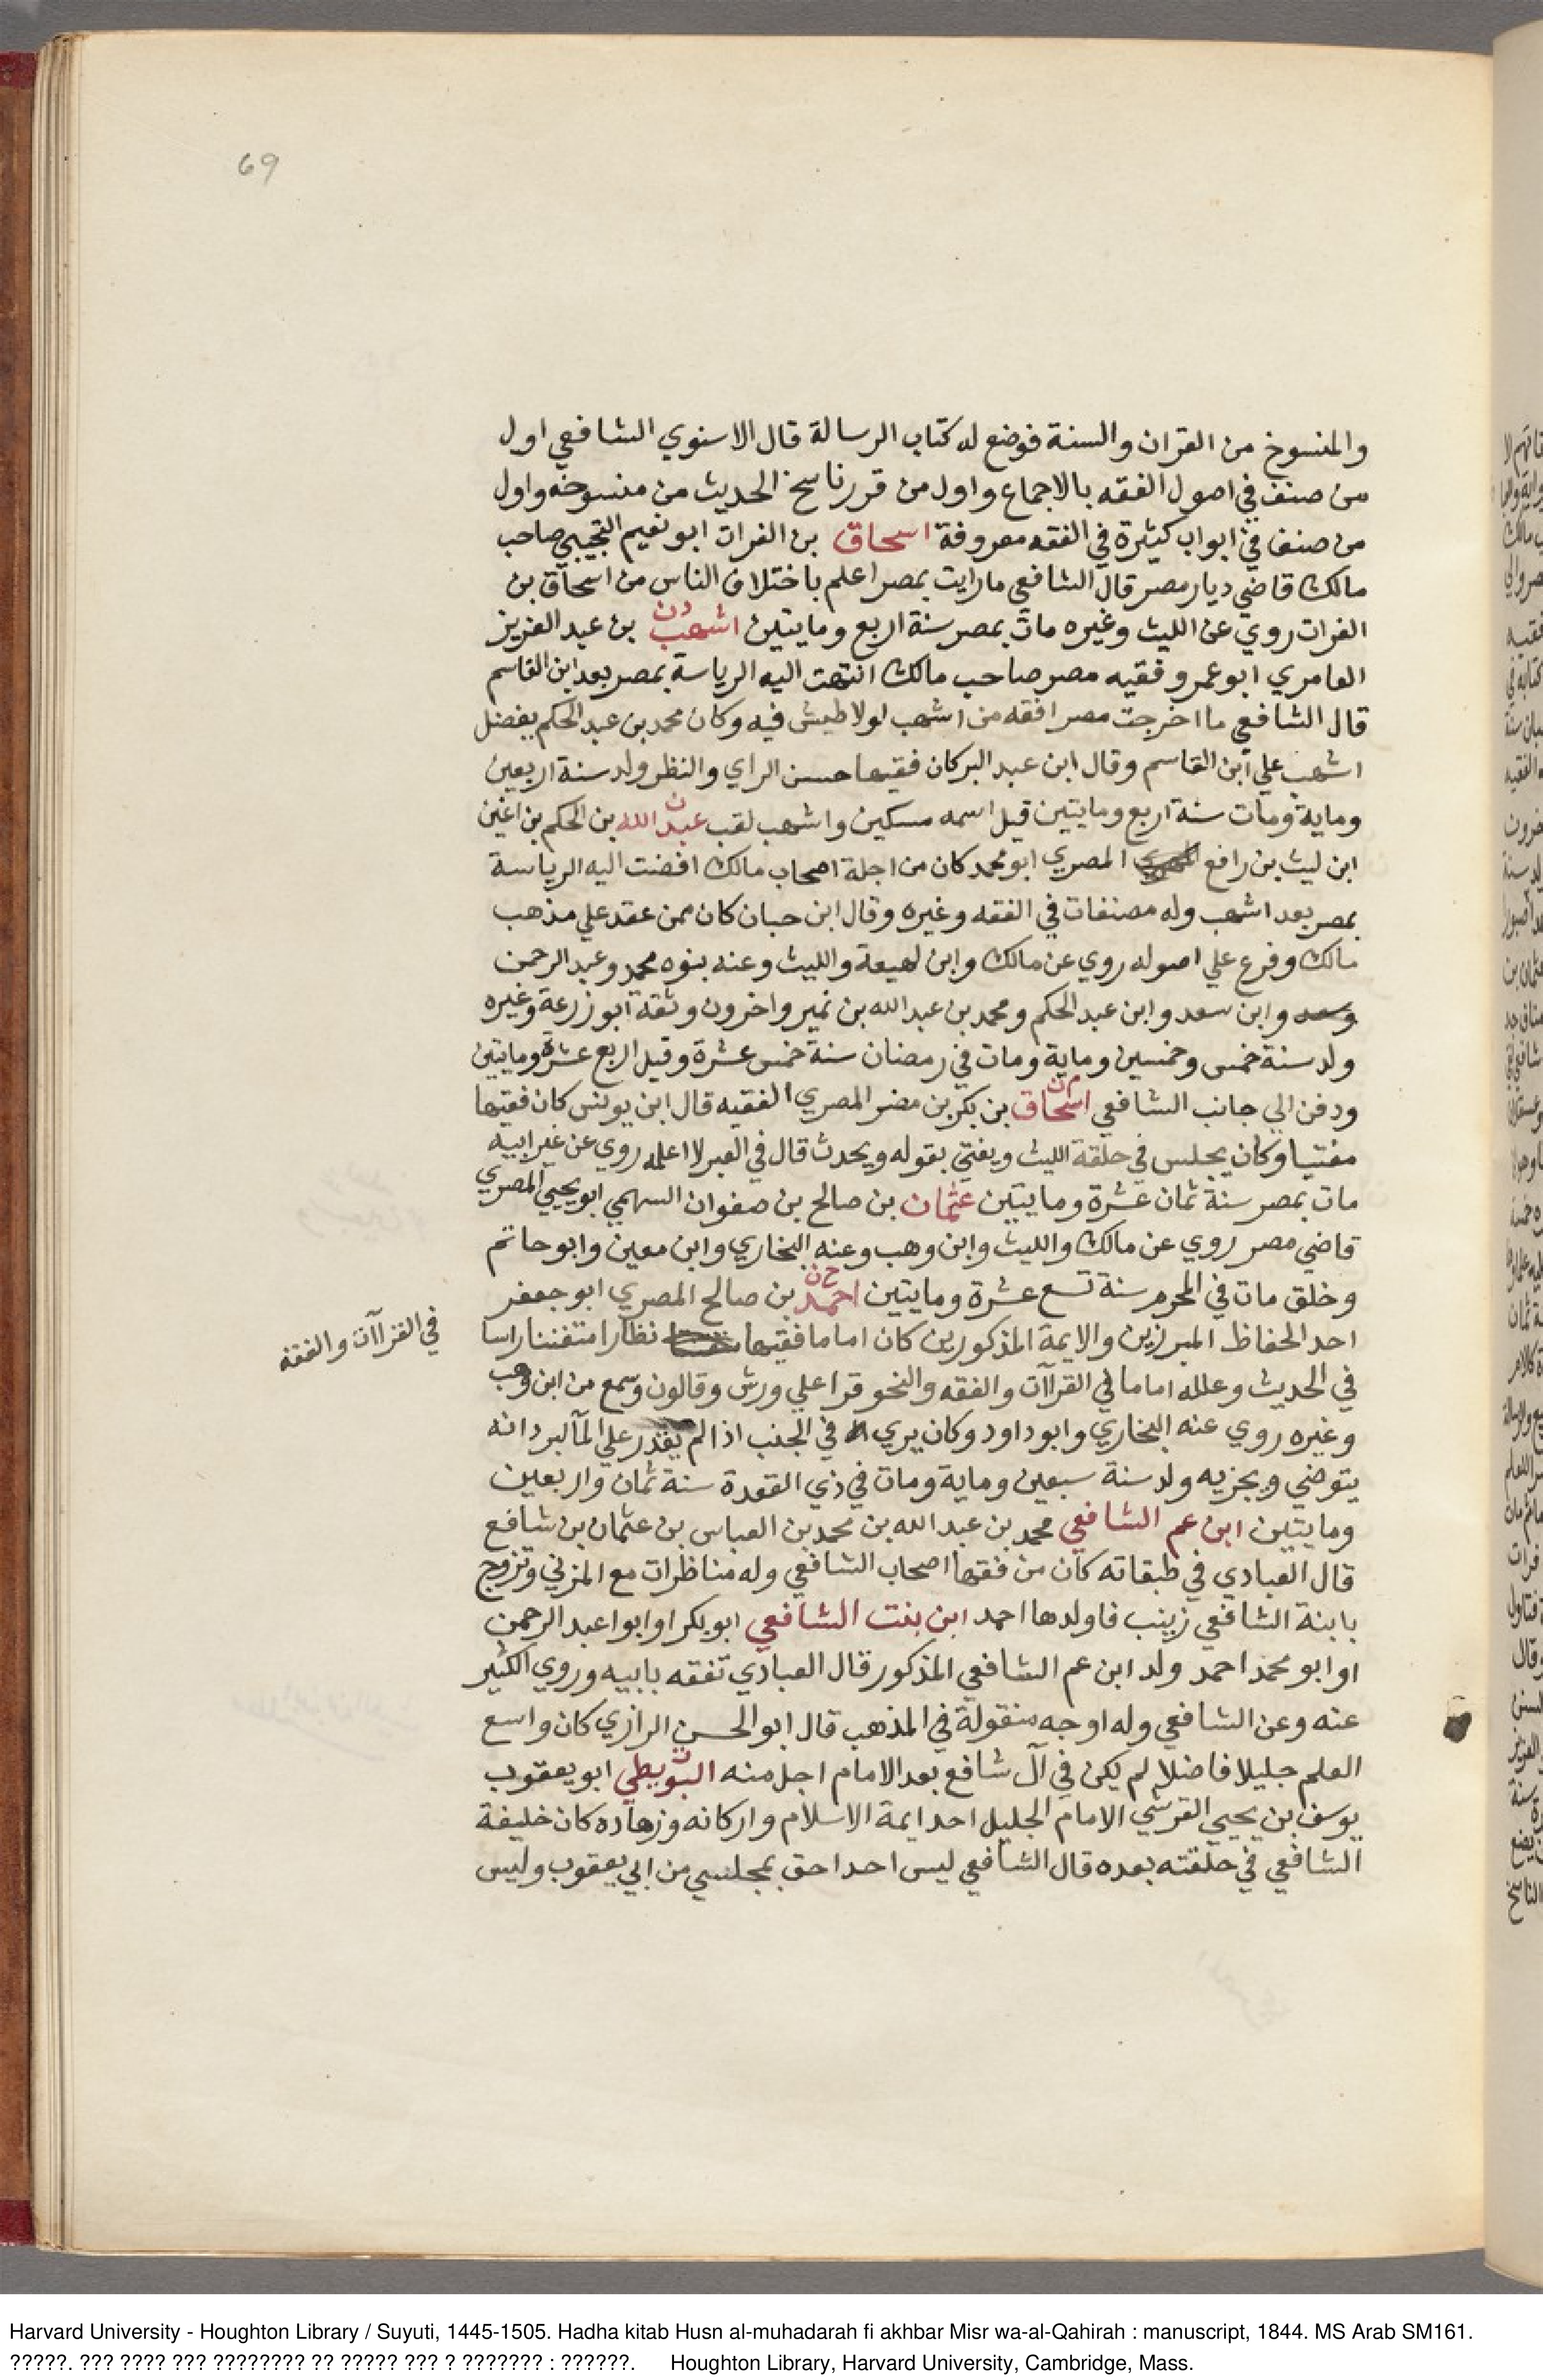 69
والمنسوخ من القران والسنة فوضع له كتاب الرسالة قال الاسنوي الشافعي اول
من صنف في اصول الفقه بالاجماع واول من قرر ناسخ الحديث من منسوخه واول
من صنف في ابواب كثيرة في الفقه معروفة اسحاق بن الفرات ابو نعيم التجيبي صاحب
مالك قاضي ديار مصر قال الشافعي ما رايت بمصر اعلم باختلاف الناس من اسحاق بن
الفرات روي عن الليث وغيره مات بمصر سنة اربع ومايتين اشهب دن بن عبد العزيز
العامري ابو عمرو فقيه مصر صاحب مالك انتهت اليه الرياسة بمصر بعد ابن القاسم
قال الشافعي ما اخرجت مصر افقه من اشهب لولا طيش فيه وكان محمد بن عبد الحكم يفضل
اشهب علي ابن القاسم وقال ابن عبد البر كان فقيها حسن الراي والنظر ولد سنة اربعين
وماية ومات سنة اربع ومايتين قيل اسمه مسكين واشهب لقب عبد الله ن بن الحكم بن اعين
ابن ليث بن رافع المصري ابو محمد كان من اجلة اصحاب مالك افضت اليه الرياسة
بمصر بعد اشهب وله مصنفات في الفقه وغيره وقال ابن حبان كان ممن عقد علي مذهب
مالك وفرع علي اصوله روي عن مالك وابن لهيعة والليث وعنه بنوه محمد وعبد الرحمن
وسعد وابن سعد وابن عبد الحكم ومحمد بن عبد الله بن نمير واخرون وثقة ابو زرعة وغيره
ولد سنة خمس وخمسين وماية ومات في رمضان سنة خمس عشرة وقيل اربع عشرة ومايتين
ودفن الي جانب الشافعي اسحاق م ن بن بكر بن مضر المصري الفقيه قال ابن يونس كان فقيها
مفتيا وكان يجلس في حلقة الليث ويفتي بقوله ويحدث قال في العبر لا اعلمه روي عن غير ابيه
مات بمصر سنة ثمان عشرة ومايتين عثمان بن صالح بن صفوان السهمي ابو يحيي المصري
قاضي مصر روي عن مالك والليث وابن وهب وعنه البخاري وابن معين وابو حاتم
وخلق مات في المحرم سنة تسع عشرة ومايتين احمد ح ن بن صالح المصري ابو جعفر
احد الحفاظ المبرزين والايمة المذكورين كان اماما فقيها نظارا متفننا راسا
في القراآت والفقه
في الحديث وعلله اماما في القراآت والفقه والنحو قرا علي ورش وقالون وسمع من ابن وهب
وغيره روي عنه البخاري وابو داود وكان يري في الجنب اذا لم يقدر علي المآ لبرد انه
يتوضي ويجزيه ولد سنة سبعين وماية ومات في ذي القعدة سنة ثمان واربعين
ومايتين ابن عم الشافعي محمد بن عبد الله بن محمد بن العباس بن عثمان بن شافع
قال العبادي في طبقاته كان من فقها اصحاب الشافعي وله مناظرات مع المزني وتزوج
بابنة الشافعي زينب فاولدها احمد ابن بنت الشافعي ابو بكر او ابوا عبد الرحمن
او ابو محمد احمد ولد ابن عم الشافعي المذكور قال العبادي تفقه بابيه وروي الكثير
عنه وعن الشافعي وله اوجه منقولة في المذهب قال ابو الحسن الرازي كان واسع
العلم جليلا فاضلا لم يكن في آل شافع بعد الامام اجل منه البويطي دن ابو يعقوب
يوسف بن يحيي القرشي الامام الجليل احد ايمة الاسلام واركانه وزهاده كان خليفة
الشافعي في حلقته بعده قال الشافعي ليس احد احق بمجلسي من ابي يعقوب وليس
Harvard University - Houghton Library / Suyuti, 1445-1505. Hadha kitab Husn al-muhadarah fi akhbar Misr wa-al-Qahirah : manuscript, 1844. MS Arab SM161.
?????. ??? ???? ??? ???????? ?? ????? ??? ? ??????? : ??????. Houghton Library, Harvard University, Cambridge, Mass.